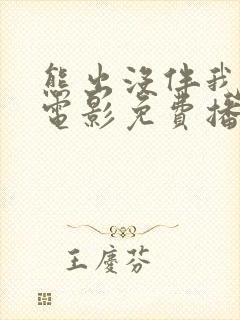 熊出没伴我
电影免費播
王慶芬